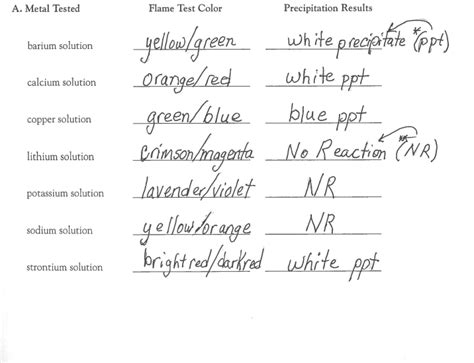 A. Metal Tested Flame Test Color Precipitation Results
barium solution yellow/green white precipitate (ppt)
calcium solution orange/red white ppt
copper solution green/blue blue ppt
lithium solution crimson/magenta No Reaction (NR)
potassium solution lavender/violet NR
sodium solution yellow/orange NR
strontium solution bright red/dark red white ppt